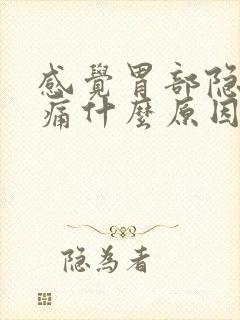 感覺胃部隐
痛什麼原因
隐为者